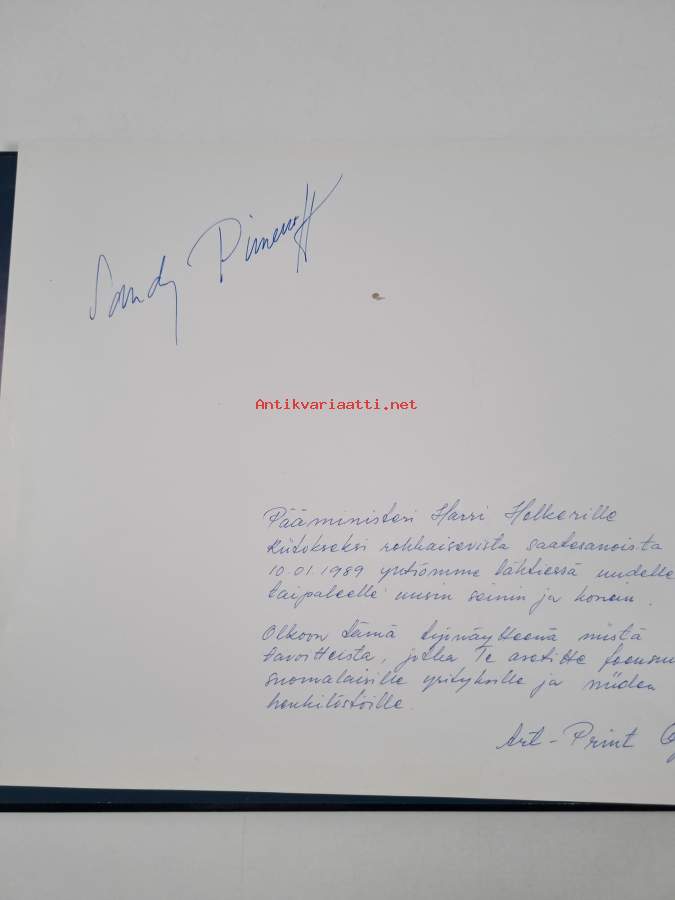 Sandy Pimenoff
Antikvariaatti.net
Pääministeri Harri Holkerille
Kiitokseksi rohkaisevista saatesanoista
10.01.1989 yhtiömme lähtiessä uudelle
taipaleelle uusin seinin ja konein.
Olkoon tämä työnäytteenä niistä
tavoitteista, jotka Te asetitte
suomalaisille yrityksille ja niiden
henkilöstöille.
Art-Print Oy